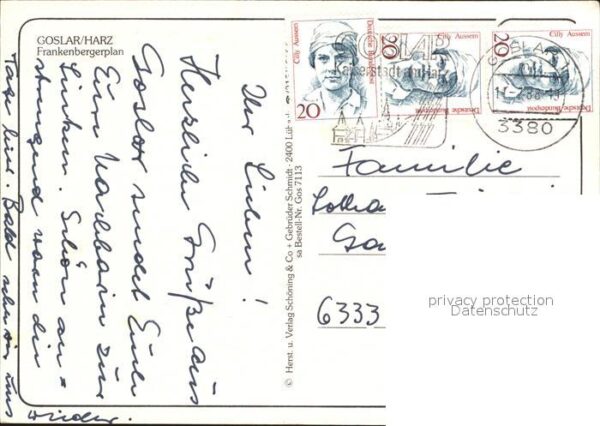 GOSLAR/HARZ
Frankenbergerplan
Ihr Lieben!
Herzliche Grüße aus
Goslar sendet Euch
Eure Nachbarin zur
Linken. Schön an=
strengend waren die
Tage hier. Bald sehen wir uns
wieder.
© Herst. u. Verlag Schöning & Co + Gebrüder Schmidt · 2400 Lübeck
sa Bestell-Nr. Gos 7113
Cilly Aussem
Deutsche Bundespost
20
Cilly Aussem
Deutsche Bundespost
20
Cilly Aussem
Deutsche Bundespost
20
GOSLAR
Kaiserstadt am Harz
GOSLAR
3380
Familie
6333
privacy protection
Datenschutz